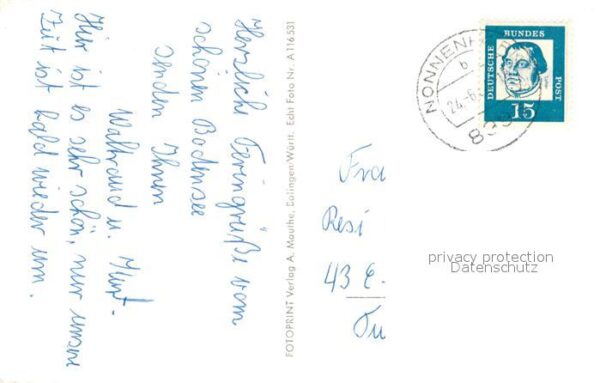 Herzliche Feriengrüße vom
schönen Bodensee
senden Ihnen
Waltraud u. Kurt.
Hier ist es sehr schön, nur unsere
Zeit ist bald wieder um.
FOTOPRINT Verlag A. Mauthe, Esslingen/Württ. Echt Foto Nr. A 116 531
NONNENH
b
24.6.
833
DEUTSCHE BUNDES POST
15
Fra
Resi
43 E-
Tu
privacy protection
Datenschutz